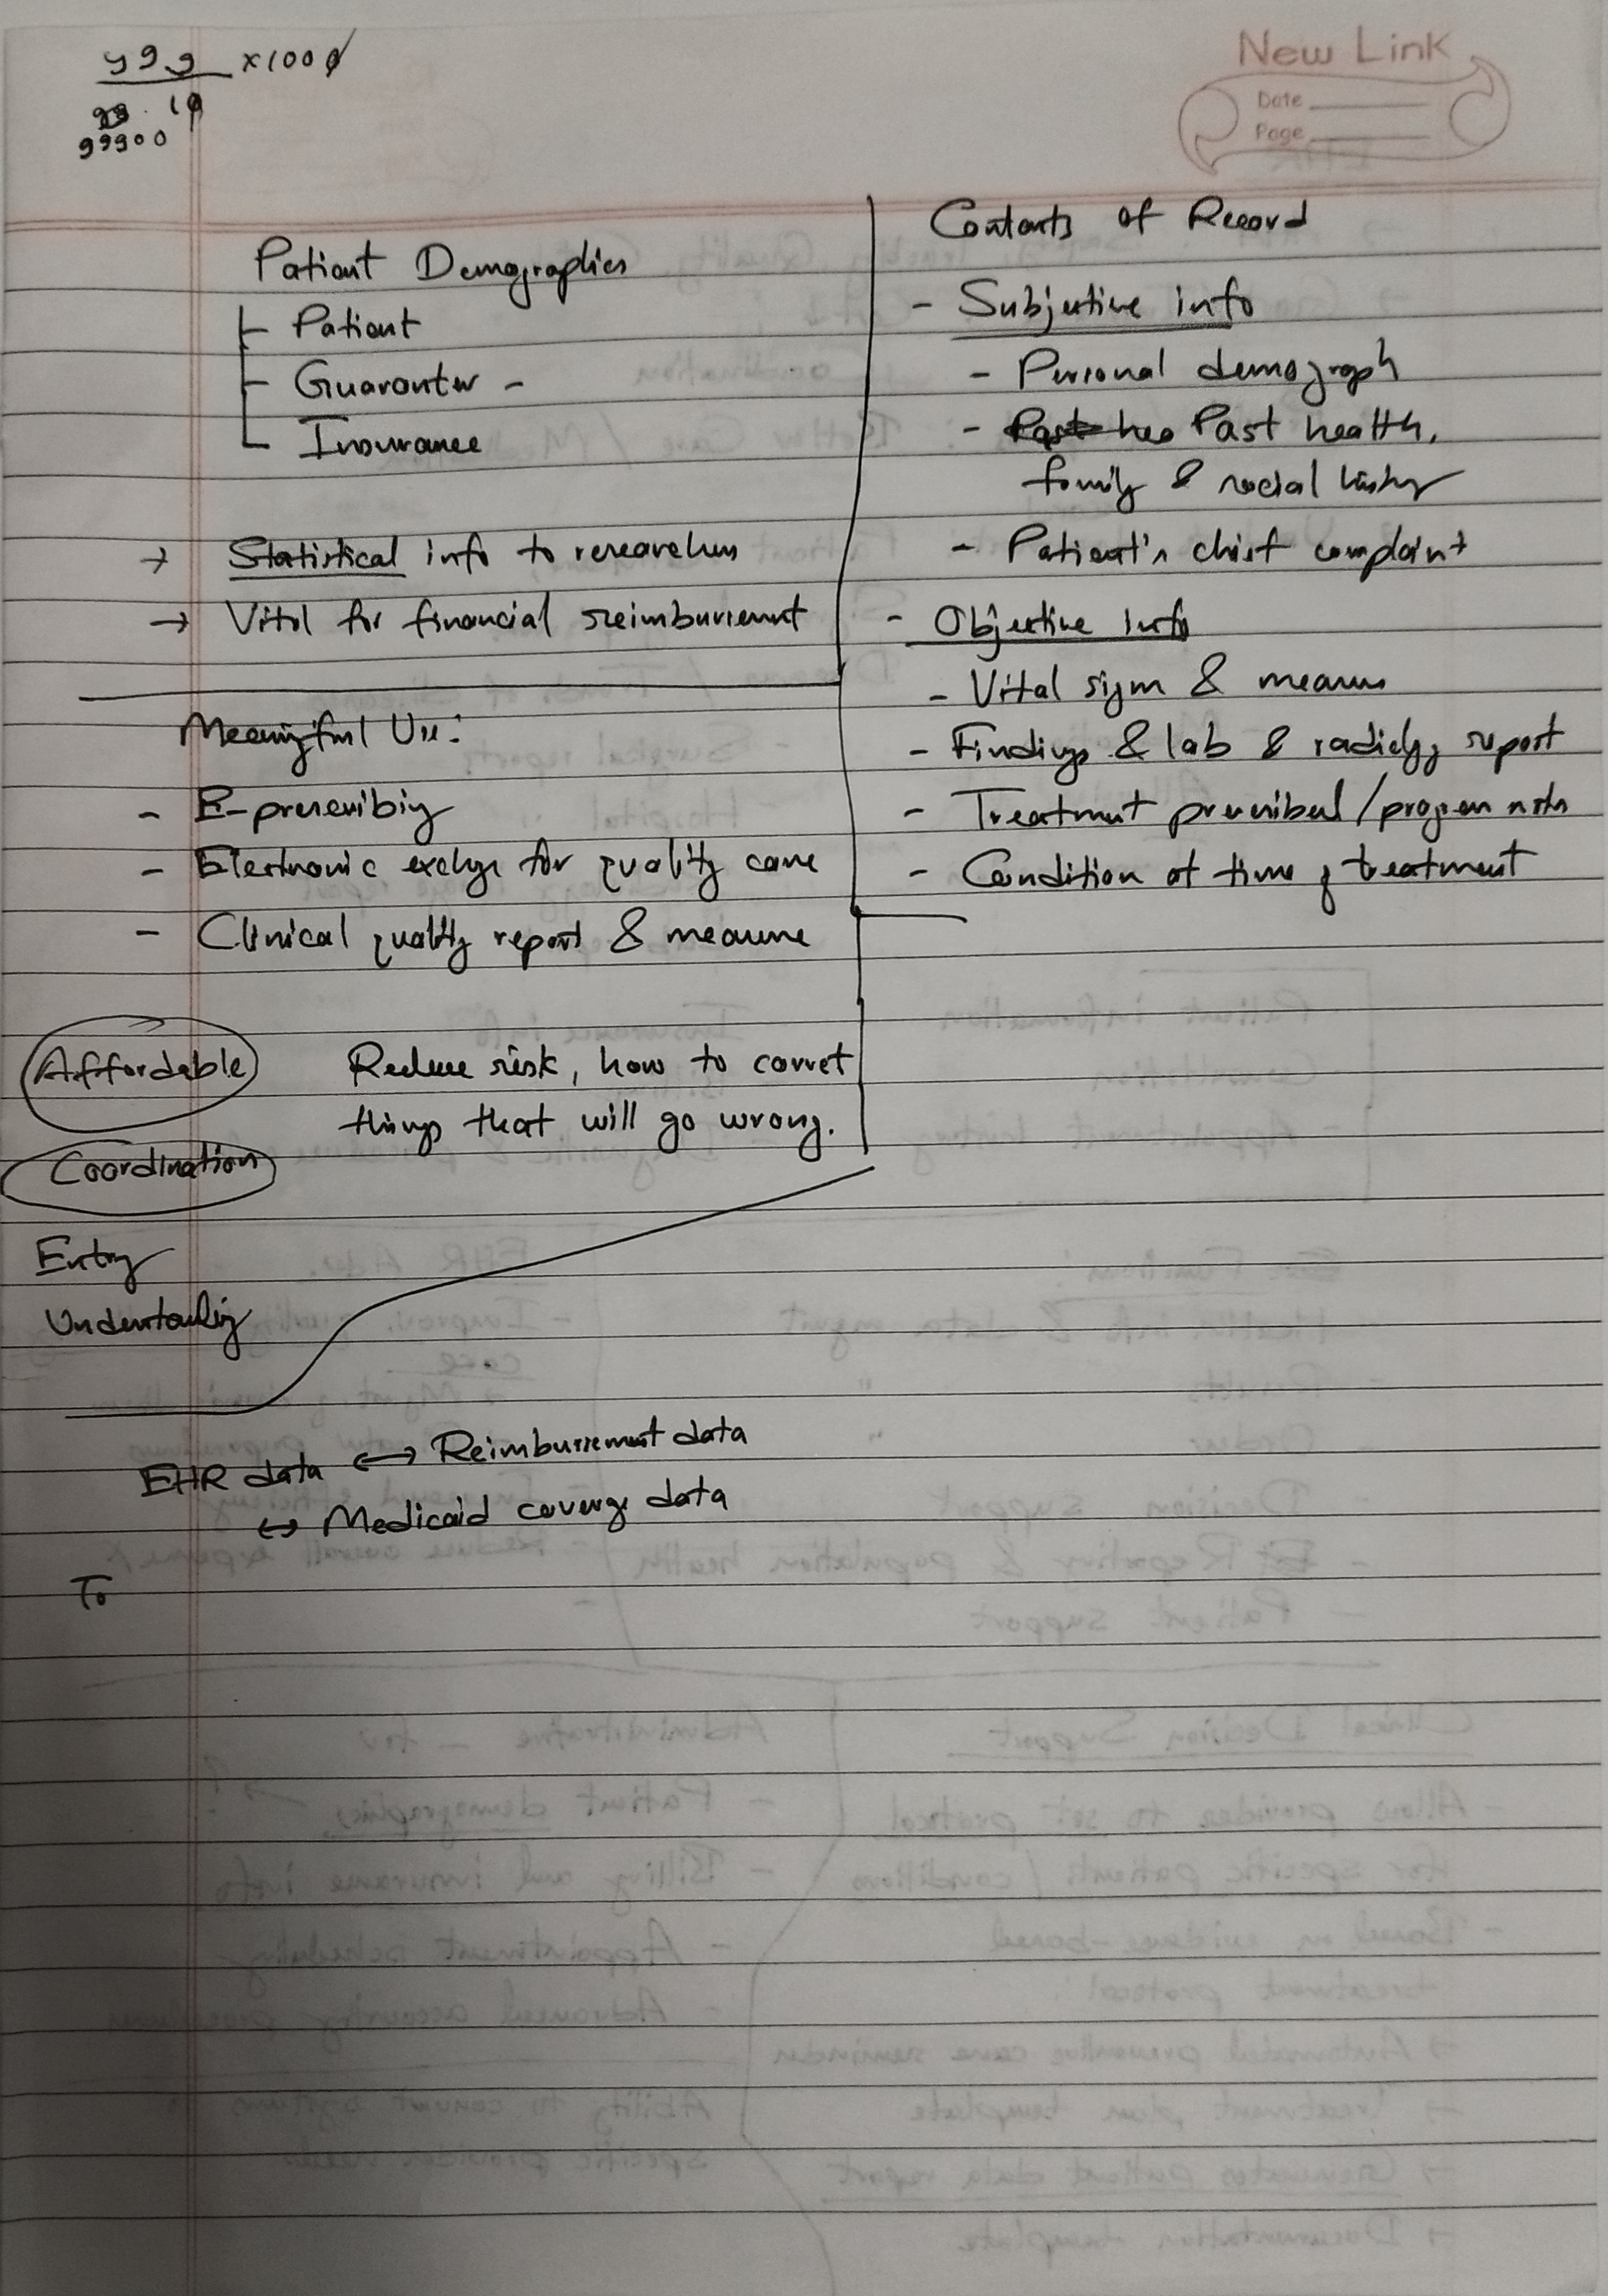 999 x100
99900
New Link
Date
Page
Patient Demographics
Patient
Guarantor -
Insurance
→ Statistical info to researchers
→ Vital for financial reimbursement
Meaningful Use:
- E-prescribing
- Electronic exchge for quality care
- Clinical quality report & measure
Affordable
Reduce risk, how to corret
things that will go wrong.
Coordination
Entry
Undertaking
Contents of Record
- Subjective info
- Personal demograph
- Past health,
family & social history
- Patient's chief complaint
- Objective info
- Vital signs & measures
- Findings & lab & radiology report
- Treatment prescribed/progress notes
- Condition at time of treatment
EHR data ↔ Reimbursement data
↔ Medicaid coverage data
To